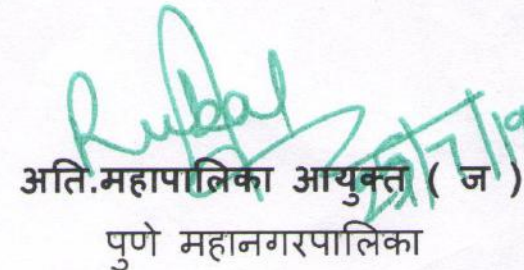 अति.महापालिका आयुक्त ( ज )
पुणे महानगरपालिका